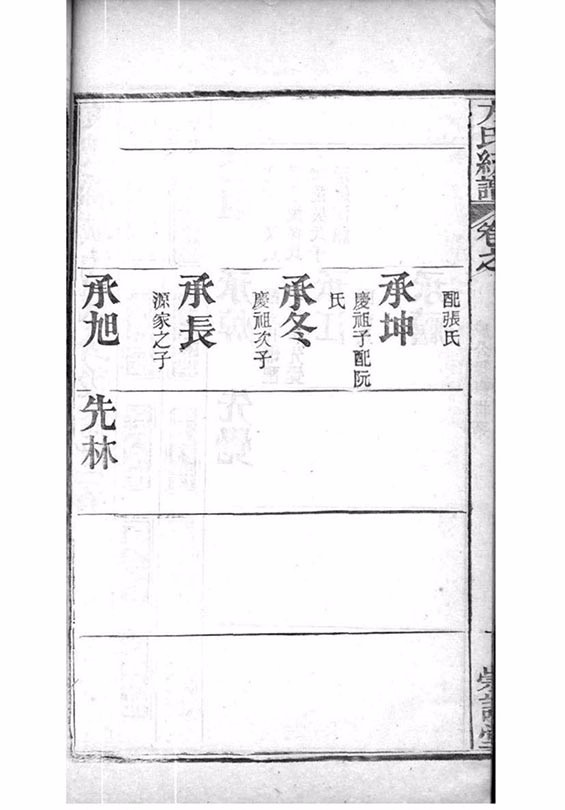 方氏統譜
卷之
配張氏
承坤
慶祖子配阮
氏
承冬
慶祖次子
承長
源家之子
承旭
先林